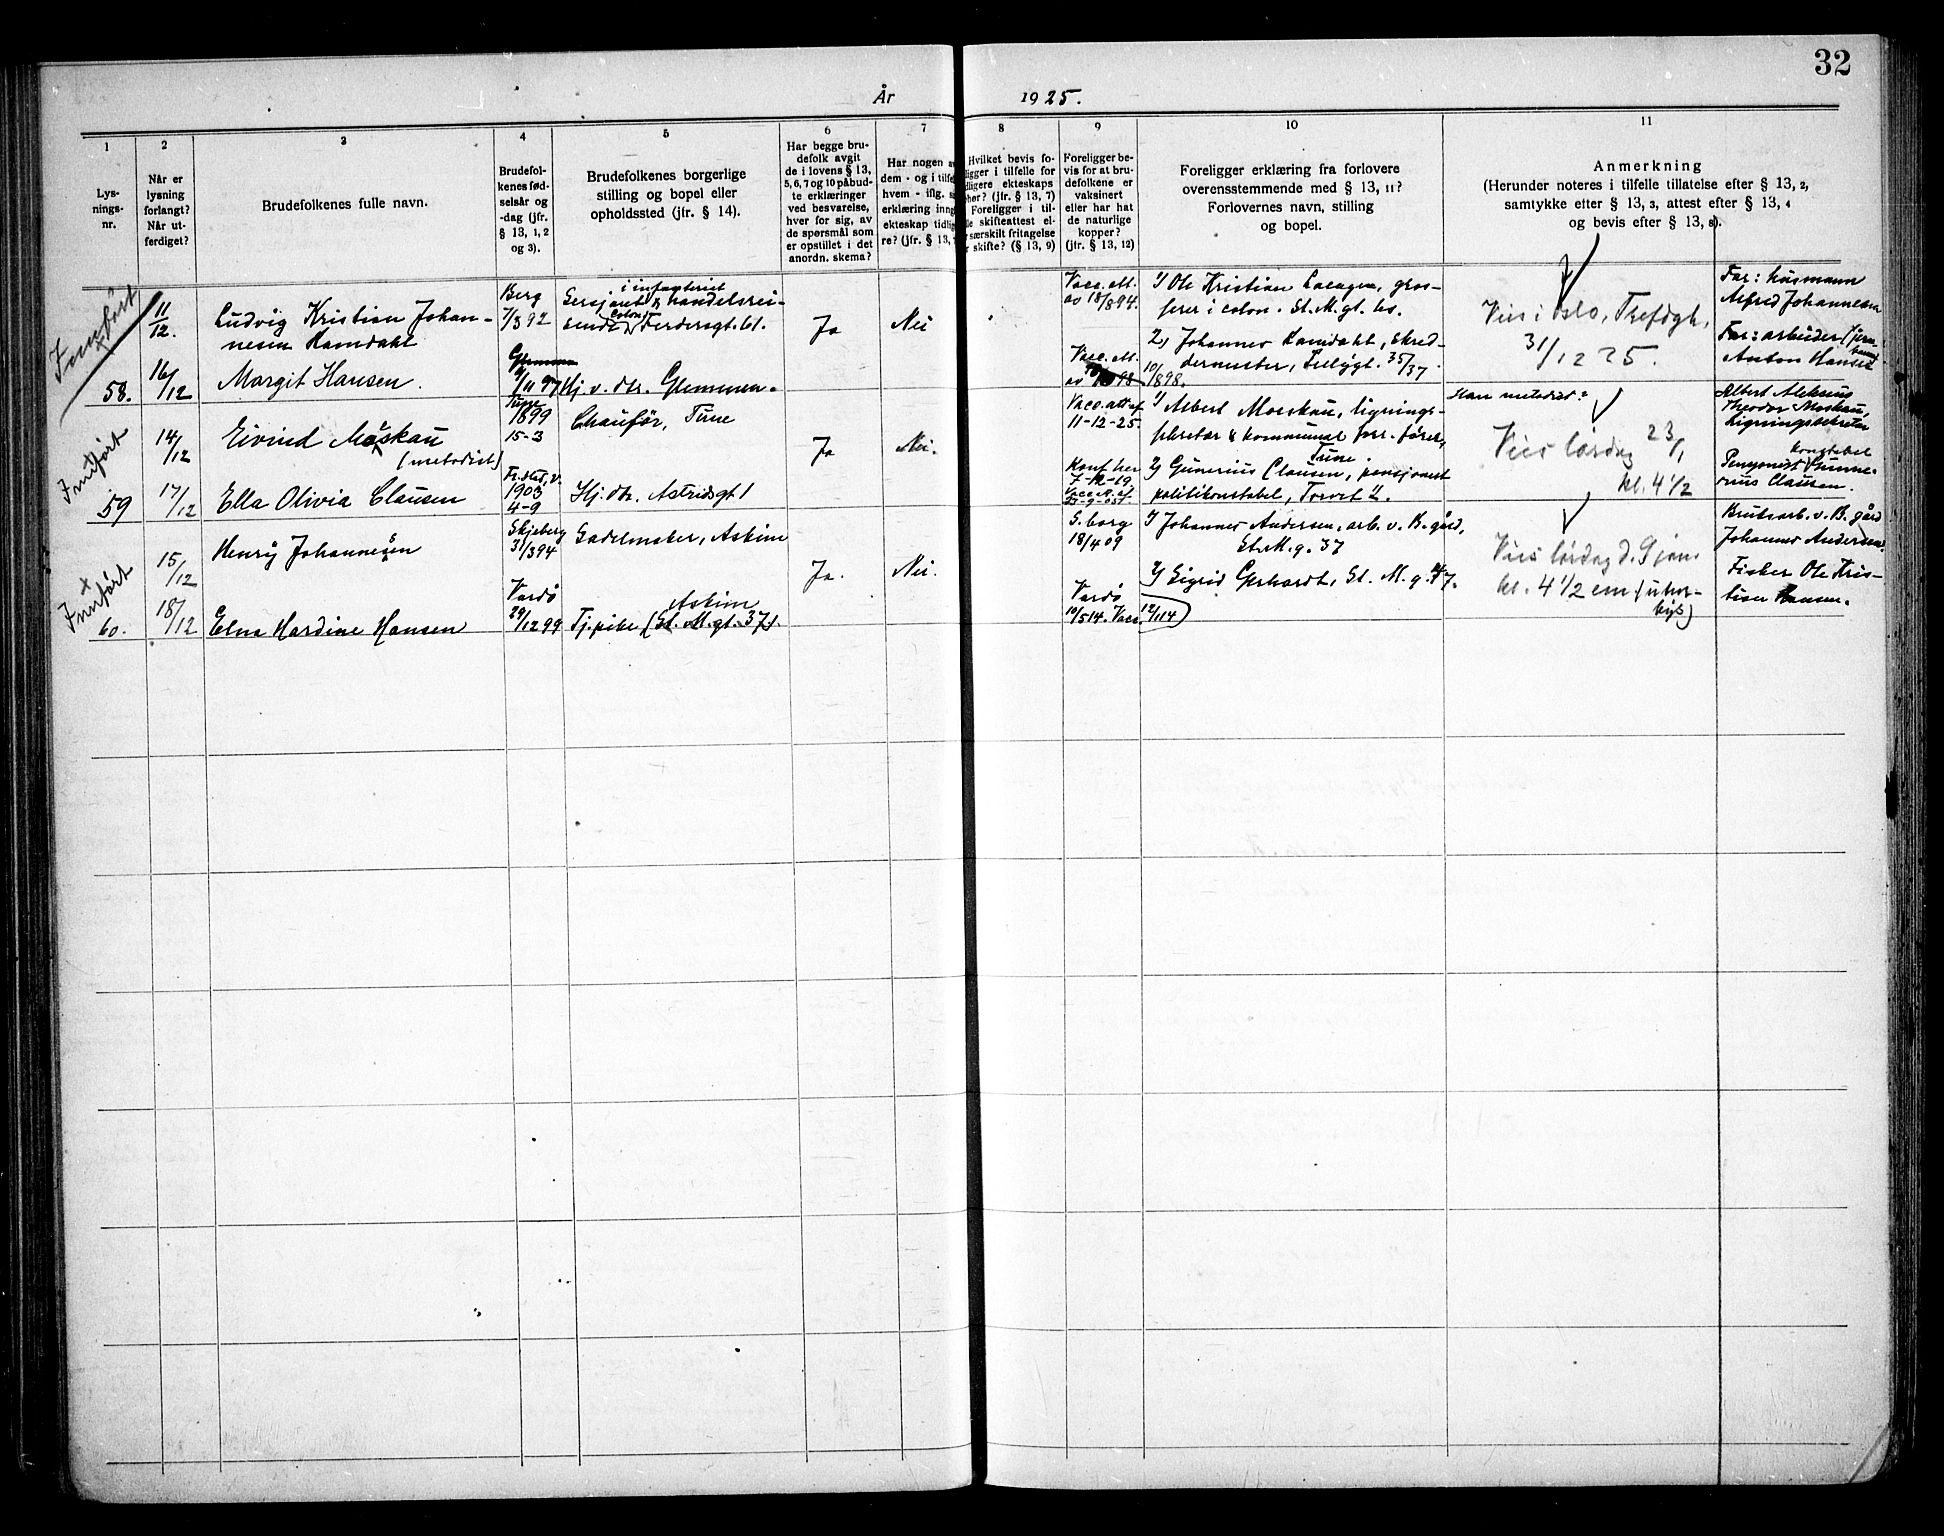 32
År 1925.
1
Lysningsnr.
2
Når er
lysning
forlangt?
Når utferdiget?
3
Brudefolkenes fulle navn.
4
Brudefolkenes fødselsår og
-dag (jfr.
§ 13, 1, 2
og 3).
5
Brudefolkenes borgerlige
stilling og bopel eller
opholdssted (jfr. § 14).
6
Har begge brudefolk avgit
de i lovens § 13,
5, 6, 7 og 10 påbudte erklæringer
ved besvarelse,
hver for sig, av
de spørsmål som
er opstillet i det
anordn. skema?
7
Har nogen a
dem - og i tilfel
hvem - iflg. s
erklæring inng
ekteskap tidlig
re? (jfr. § 13,
8
Hvilket bevis fo-
ligger i tilfelle for
dligere ekteskaps
phør? (jfr. § 13, 7)
Foreligger i til-
le skifteattest el-
særskilt fritagelse
skifte? (§ 13, 9)
9
Foreligger bevis for at brudefolkene er
vaksinert
eller har hat
de naturlige
kopper?
(jfr. § 13, 12)
10
Foreligger erklæring fra forlovere
overensstemmende med § 13, 11?
Forlovernes navn, stilling
og bopel.
11
Anmerkning
(Herunder noteres i tilfelle tillatelse efter § 13, 2,
samtykke efter § 13, 3, attest efter § 13, 4
og bevis efter § 13, 8).
Innført
58.
11/12.
16/12
Ludvig Kristian Johan-
nesen Ramdahl
Margit Hansen.
Berg
7/3 92
Glemmen
/11 97
Sersjant i infanteriet & handelsrei-
sende (Colon) Færdersgt. 61.
Hj. v. dtr. Glemmen.
Ja
Nei
Vacc. att.
av 18/8 94.
Vacc. att.
av 10/1898.
1/ Ole Kristian , gros-
serer i colon. St. M. gt. 60.
2, Johannes Ramdahl, Skred-
dermester, 35/37.
Viet i Oslo, Trefdgh,
31/12 25.
Far: husmann
Alfred Johannesen
Far: arbeider
Anton Hansen
Innført
59
14/12
17/12
Eivind Moskau
(metodist)
Ella Olivia Clausen
Tune
1899
15-3
Fr.stad, v.
1903
4-9
Chaufør, Tune
Hj. dtr. Astridsgt 1
Ja
Nei.
Vacc. att af
11-12-25.
Konf. her
1/ Albert Moeskau, lignings-
sekretær & kommunal forr. fører,
Tune
2/ Gunerius Clausen, pensjonert
politikonstabel, Torvet 2.
Han metodist?
Vies lørdag 23/1
kl. 4 1/2
Albert Aleksius
Theodor Moskau,
Ligningssekretær
Pensjonist konstabel Gunne-
rius Clausen.
Innført
60.
15/12
18/12
Henry Johannesen
Elna Hardine Hansen
Skjeberg
31/3 94
Vardø
29/12 99
Sadelmaker, Askim
Askim
Tj. pike (St. M. gt. 37).
Ja.
Nei.
S.borg
18/4 09
Vardø
10/5 14. Vacc. 12/1 14)
1/ Johannes Andersen, arb. v. B. gård,
St. M. g. 37
2/ Sigrid Gerhardt, St. M. g. 47.
Vies lørdag d. 9 jan.
kl. 4 1/2 em
Bruksarb. v. B. gård
Johannes Andersen.
Fisker Ole Kris-
tian Hansen.